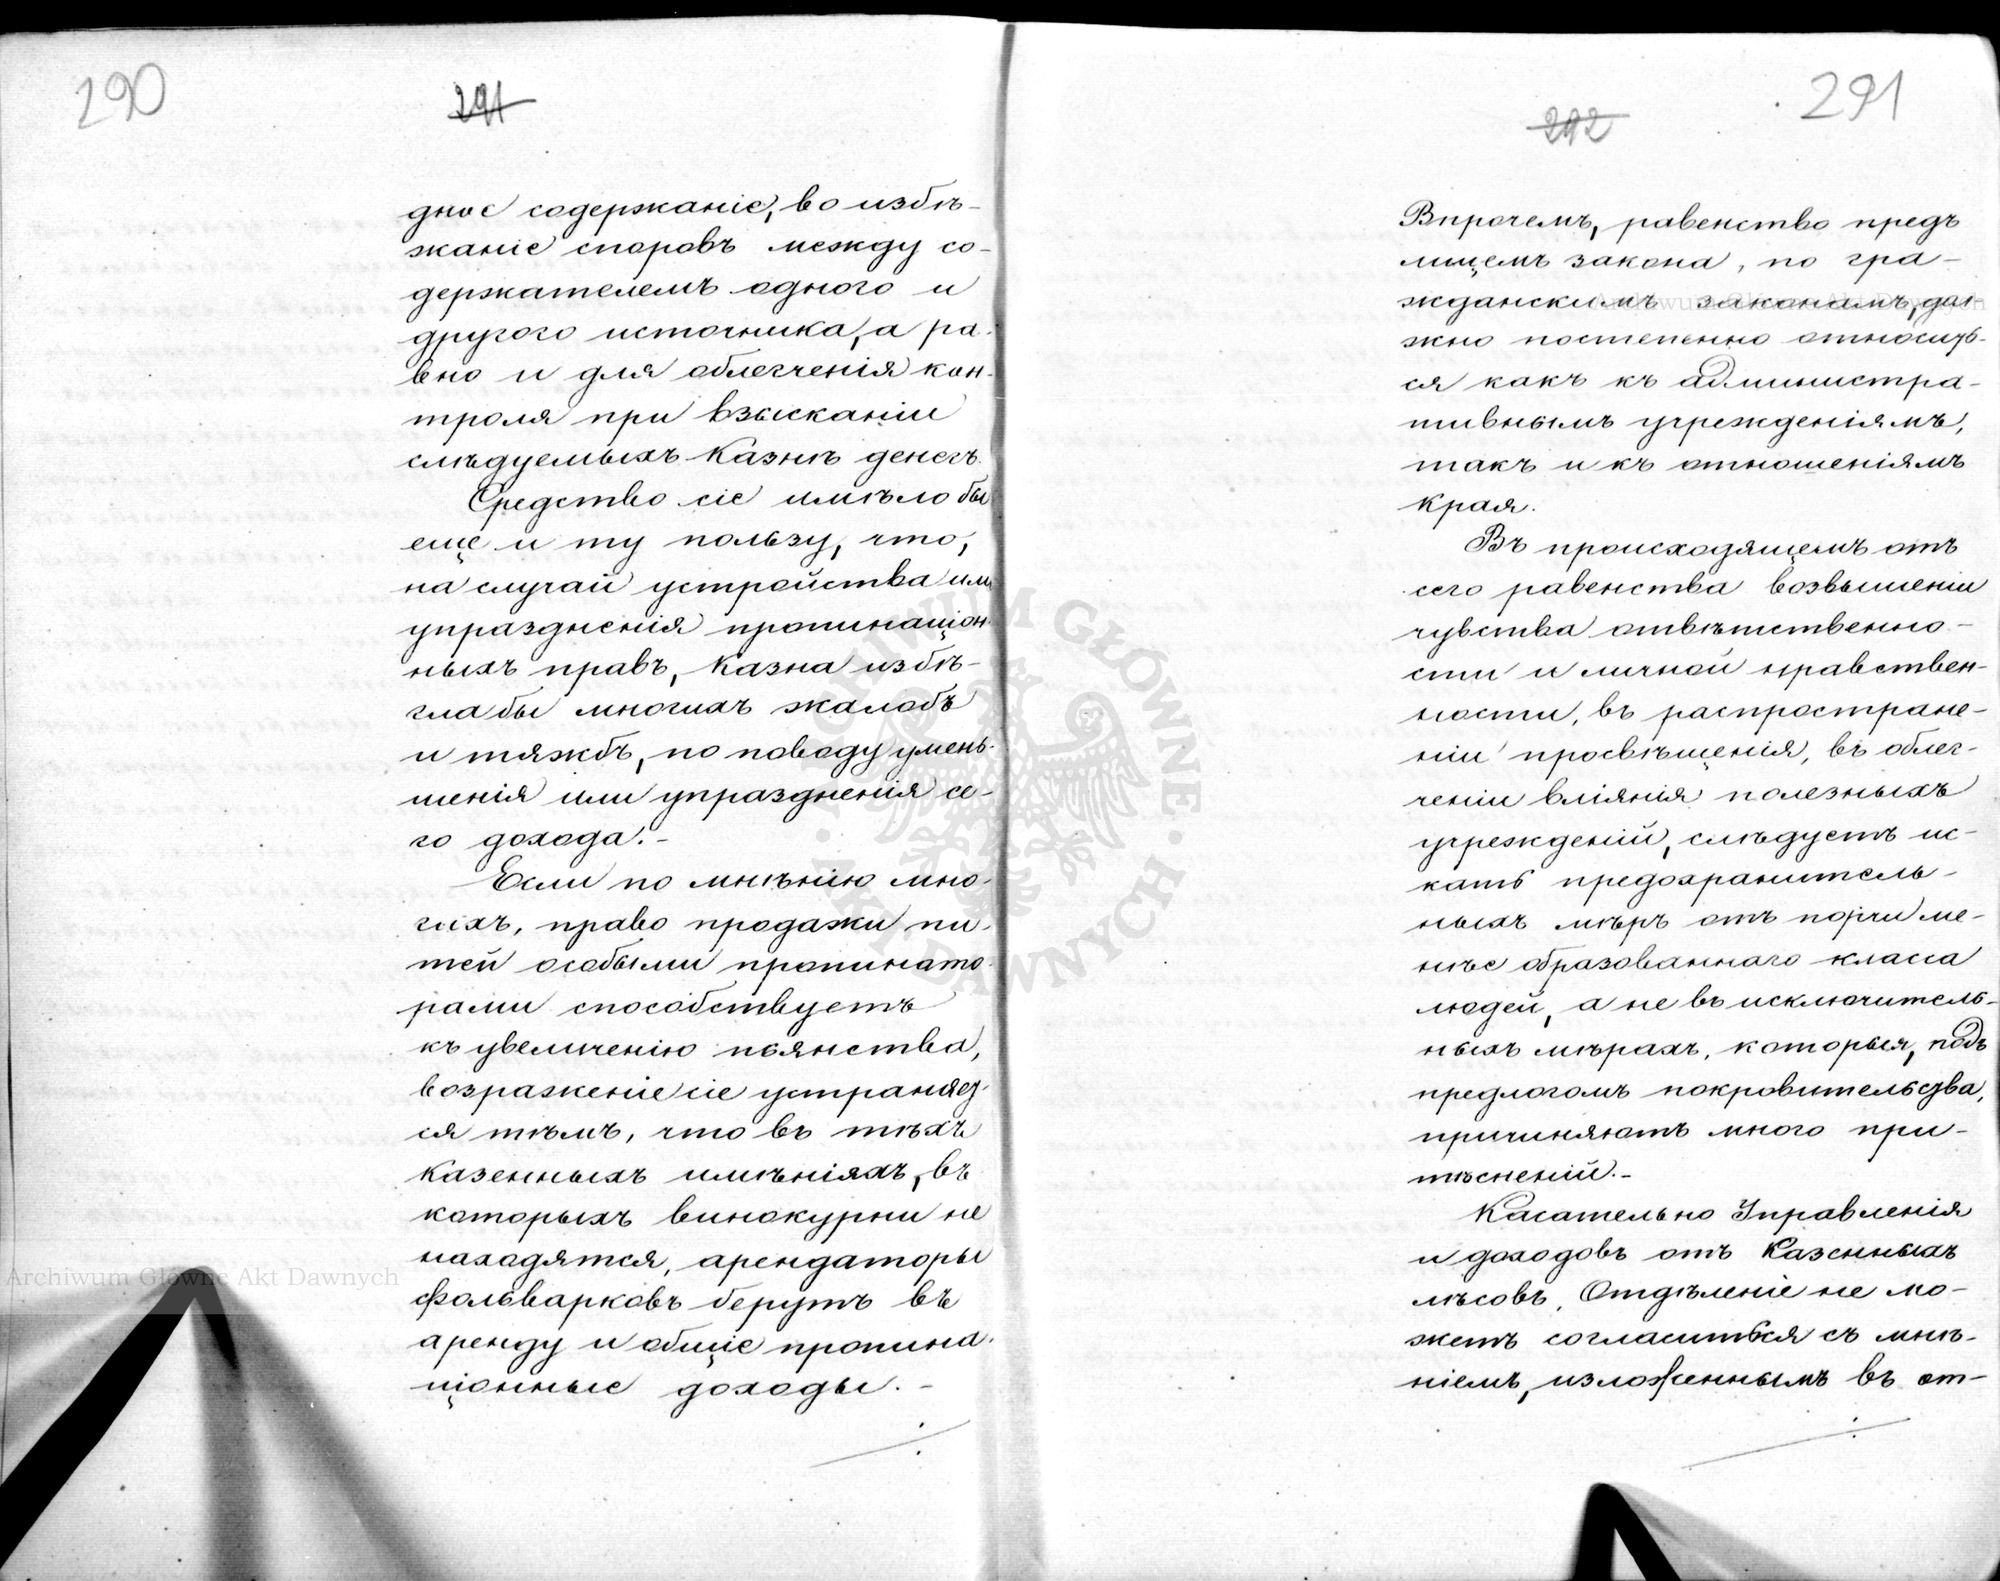 290
291
дное содержаніе, во избѣ-
жаніе споровъ между со-
держателемъ одного и
другого источника, а ра-
вно и для облегченія кон-
троля при взысканіи
слѣдуемыхъ Казнѣ денегъ.
Средство сіе имѣло бы
еще и ту пользу, что,
на случай устройства или
упраздненія пропинаціон-
ныхъ правъ, Казна избѣ-
гла бы многихъ жалобъ
и тяжбъ, по поводу умень-
шенія или упраздненія се-
го дохода.-
Если по мнѣнію мно-
гихъ, право продажи пи-
тей особыми пропинато-
рами способствуетъ
къ увеличенію пьянства,
возраженіе сіе устраняет-
ся тѣмъ, что въ тѣхъ
Казенныхъ имѣніяхъ, въ
которыхъ винокурни не
находятся, арендаторы
фольварковъ берутъ въ
аренду и общіе пропина-
ціонные доходы.-
291
292
Впрочемъ, равенство предъ
лицемъ закона, по гра-
жданскимъ законамъ, дол-
жно постепенно относить-
ся какъ къ административ-
тивнымъ учрежденіямъ,
такъ и къ отношеніямъ
края.
Въ происходящемъ отъ
сего равенства возвышеніи
чувства отвѣтственно-
сти и личной нравствен-
ности, въ распростране-
ніи просвѣщенія, въ облег-
ченіи вліянія полезныхъ
учрежденій, слѣдуетъ ис-
кать предохранитель-
ныхъ мѣръ отъ порчи ме-
нѣе образованнаго класса
людей, а не въ исключитель-
ныхъ мѣрахъ, которыя, подъ
предлогомъ покровительства,
причиняютъ много при-
тѣсненій.-
Касательно Управленія
и доходовъ отъ Казенныхъ
лѣсовъ, Отдѣленіе не мо-
жетъ согласиться съ мнѣ-
ніемъ, изложеннымъ въ от-
Archiwum Główne Akt Dawnych
ARCHIWUM GŁÓWNE · AKT DAWNYCH ·
Archiwum Główne Akt Dawnych